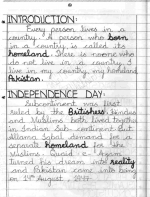 INTRODUCTION:
Every person lives in a
country. A person who born
in a country is called its
homeland. There is no one who
do not live in a country. I
live in my country, my homeland
Pakistan.
INDEPENDENCE DAY:
Subcontinent was first
ruled by the Britishers. Hindus
and Muslims both lived together
in Indian Sub-continent. But
Allama Iqbal demand for a
separate homeland for the
Muslims. Quaid-e-Azam
turned his dream into reality
and Pakistan came into being
on August, 1947